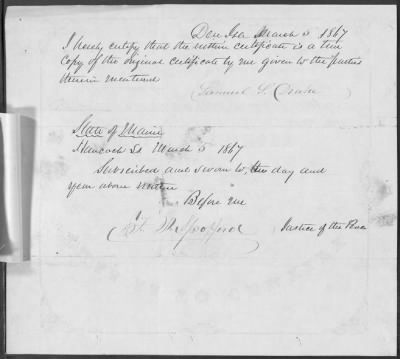 Deer Isle March 5 1867
I hereby certify that the within certificate is a true
copy of the original certificate by me given to the parties
therein mentioned
Samuel L.
State of Maine
Hancock Ss March 5 1867
Subscribed and sworn to, the day and
year above written
Before me
Spofford Justice of the Peace